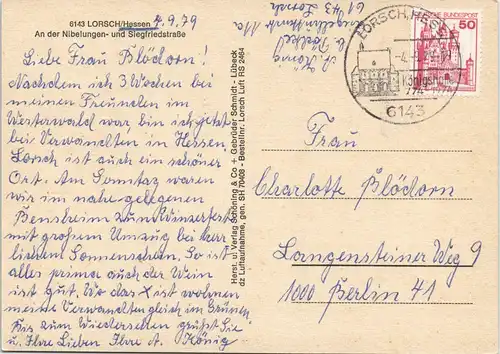 6143 LORSCH/Hessen 4.9.79
An der Nibelungen- und Siegfriedstraße
Liebe Frau Blödorn!
Nachdem ich 3 Wochen bei
meinen Freunden im
Westerwald war, bin ich jetzt
bei Verwandten in Hessen.
Lorsch ist auch ein schöner
Ort. Am Sonntag waren
wir im nahe gelegenen
Bensheim zum Winzerfest
mit großem Umzug bei herr-
lichem Sonnenschein. So ist
alles prima auch der Wein
ist gut. Wo das X ist wohnen
meine Verwandten gleich im Grünen.
Bis zum Wiedersehen grüßt Sie
u. Ihre Lieben Ihre A. König
Herst. u. Verlag Schöning & Co + Gebrüder Schmidt - Lübeck
dz Luftaufnahme, gen. SH 70408 - Bestellnr. Lorsch Luft RS 2464
6143 Lorsch
LORSCH, HESS
-4.-9.79
Königshalle
774 1974
6143
DEUTSCHE BUNDESPOST
50
Frau
Charlotte Blödorn
Langensteiner Weg 9
1000 Berlin 41